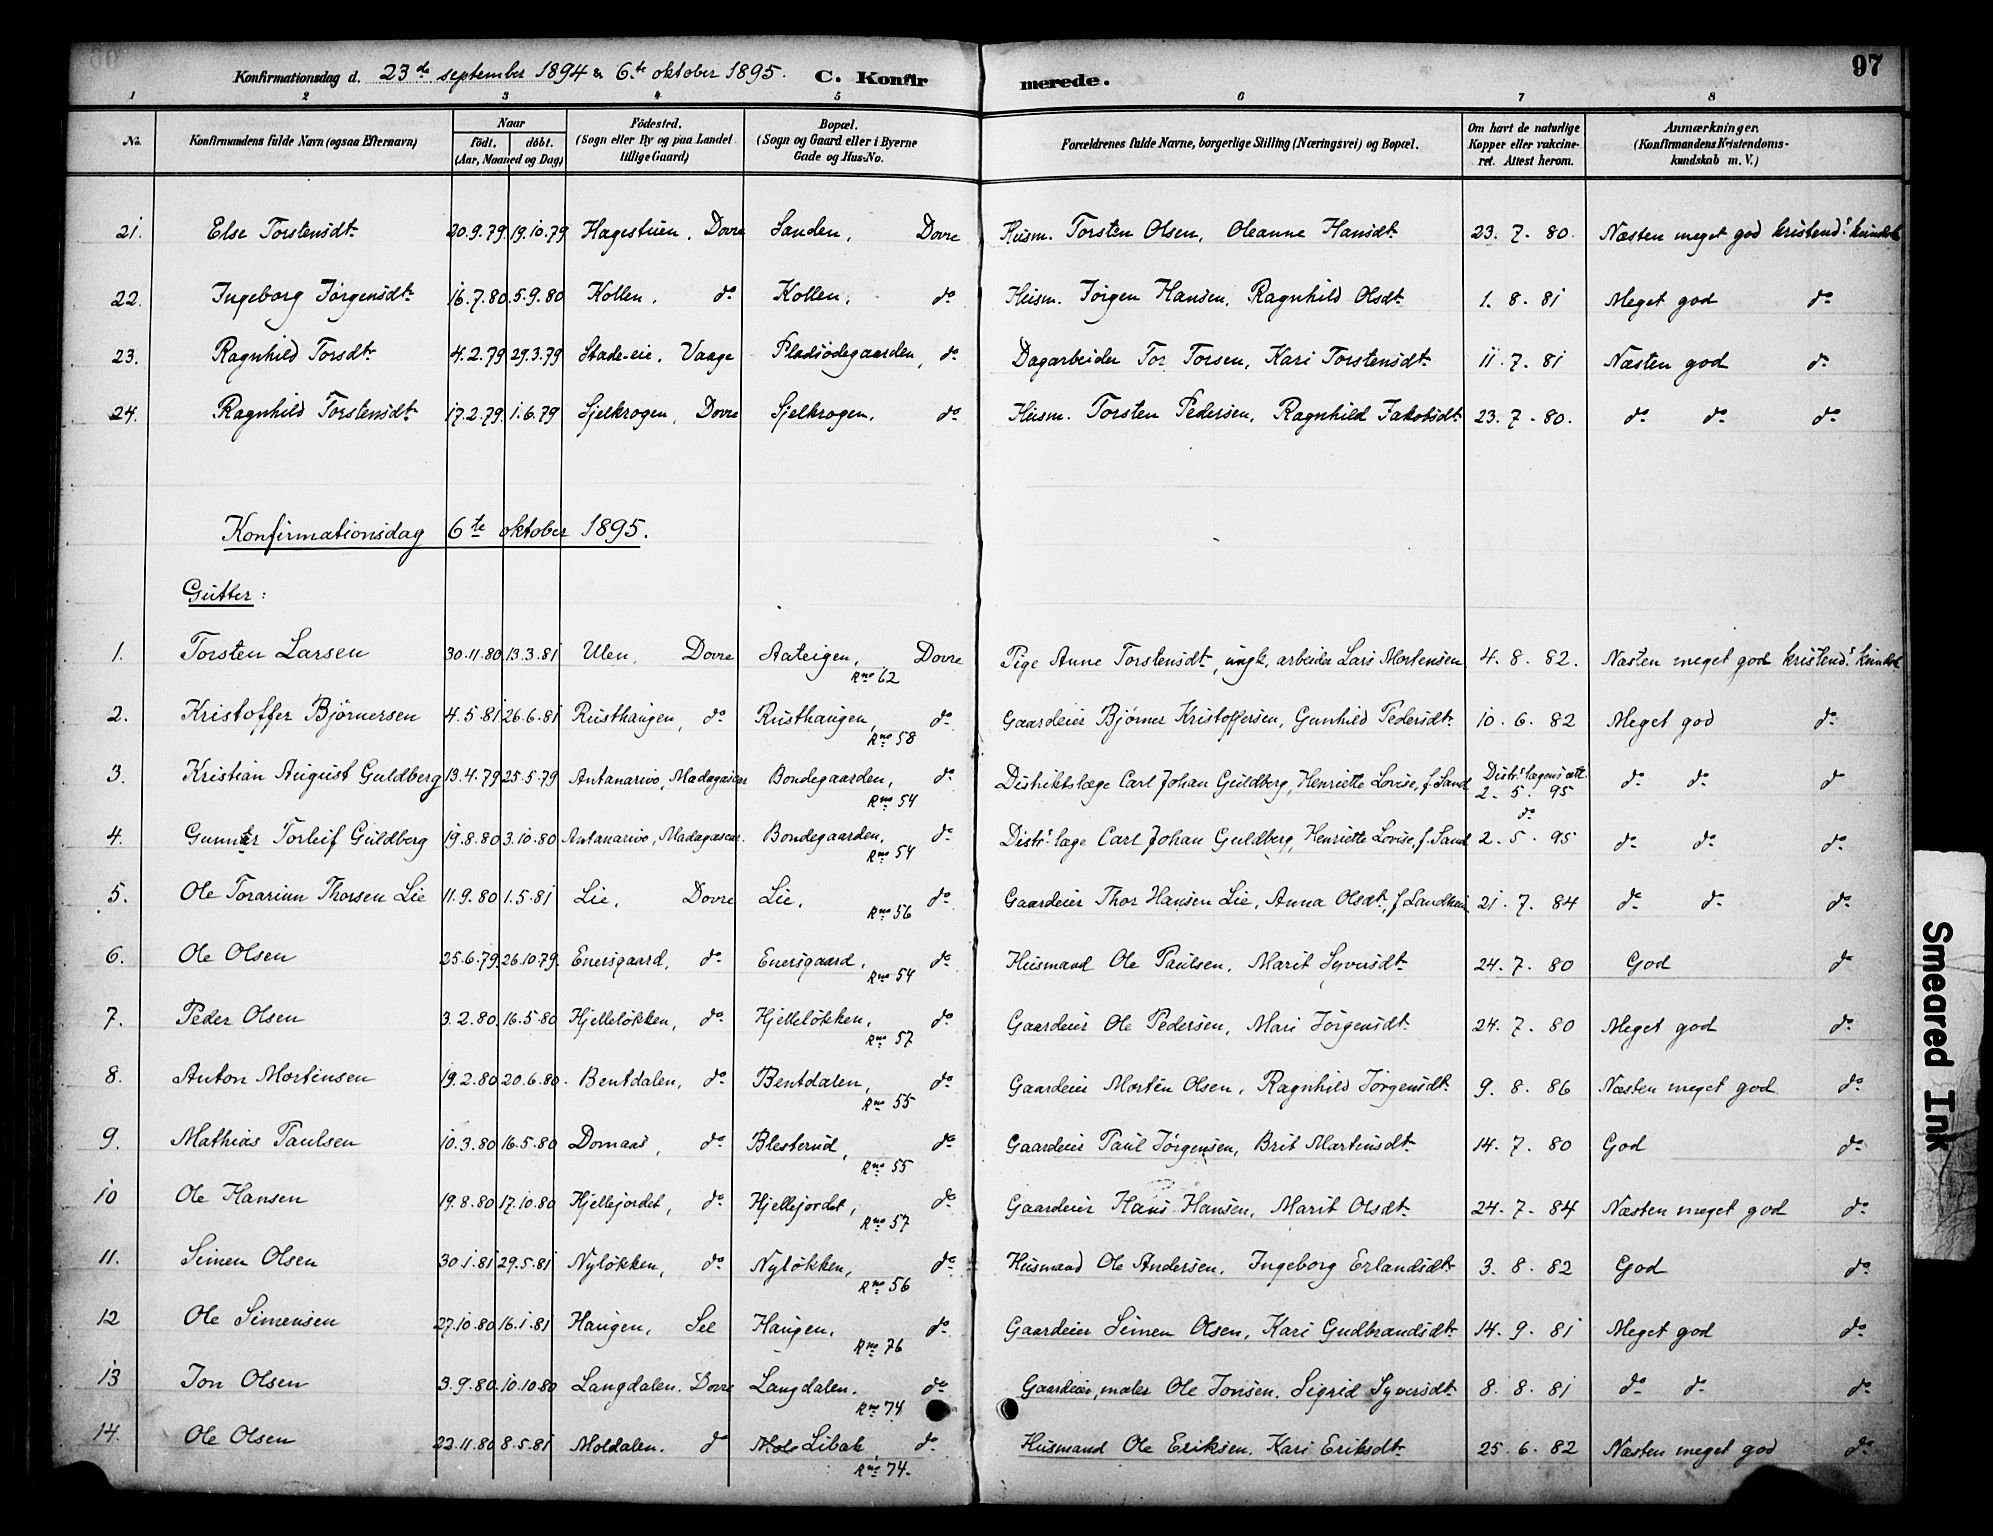 97
Konfirmationsdag d. 23de september 1894 & 6.te oktober 1895. C. Konfir merede.
1 2 3 4 5 6 7 8
No. Konfirmandens fulde Navn (ogsaa Efternavn) Naar född. döbt. (Aar, Maaned og Dag) Födested. (Sogn eller By og paa Landet tillige Gaard) Bopæl. (Sogn og Gaard eller i Byerne Gade og Hus-No. Forældrenes fulde Navne, borgerlige Stilling (Næringsvei) og Bopæl. Om havt de naturlige Kopper eller vakcineret. Attest herom. Anmærkninger. (Konfirmandens Kristendomskundskab m. V.)
21. Else Torstensdtr 20.9.79. 19.10.79 Hagestuen, Dovre Sanden, Dovre Husm. Torsten Olsen, Oleanne Hansdtr 23. 7. 80. Næsten meget god kristends kundsk
22. Ingeborg Jørgensdtr 16.7.80 5.9.80 Kollen, do Kollen, do Husm. Jørgen Hansen, Ragnhild Olsdtr 1. 8. 81 Meget god do
23. Ragnhild Torsdtr 4.2.79 29.3.79 Stade-eie, Vaage Pladsødegaarden, do Dagarbeider Tor Torsen, Kari Torstensdtr 11. 7. 81 Næsten god do
24. Ragnhild Torstensdtr 17.2.79. 1.6.79 Sjelkrogen, Dovre Sjelkrogen, do Husm. Torsten Pedersen, Ragnhild Jakobsdtr 23. 7. 80. do do do
Konfirmationsdag 6te oktober 1895.
Gutter:
1. Torsten Larsen 30.11.80 13.3.81 Ulen, Dovre Aateigen, Dovre Rno 62 Pige Anne Torstensdtr, ungk. arbeider Lars Mortensen 4. 8. 82. Næsten meget god kristends kundsk
2. Kristoffer Bjørnersen 4.5.81 26.6.81 Rusthaugen, do Rusthaugen, do Rno 58 Gaardeier Bjørner Kristoffersen, Gunhild Pedersdtr 10. 6. 82 Meget god do
3. Kristian August Guldberg 13.4.79 25.5.79 Antanarivo, Madagascar Bondegaarden, do Rno 54 Distriktslæge Carl Johan Guldberg, Henriette Lovise, f. Sand Distr.s lægens att. 2. 5. 95 do do do
4. Gunnar Torleif Guldberg 19.8.80 3.10.80 Antanarivo, Madagascar. Bondegaarden, do Rno 54 Distr.s læge Carl Johan Guldberg, Henriette Lovise, f. Sand do 2. 5. 95 do do do
5. Ole Torarinn Thorsen Lie 11.9.80 1.5.81 Lie, Dovre Lie, do Rno 56 Gaardeier Thor Hansen Lie, Anna Olsdtr, f. Landheim 21. 7. 84 do do do
6. Ole Olsen 25.6.79. 26.10.79. Enersgaard, do Enersgaard, do Rno 54 Husmand Ole Paulsen, Marit Syversdtr 24. 7. 80 God do
7. Peder Olsen 3.2.80 16.5.80 Hjelleløkken, do Hjelleløkken, do Rno 57 Gaardeier Ole Pedersen, Mari Jørgensdtr 24. 7. 80 Meget god do
8. Anton Mortensen 19.2.80 20.6.80. Bentdalen, do Bentdalen, do Rno 55 Gaardeier Morten Olsen, Ragnhild Jørgensdtr 9. 8. 86 Næsten meget god do
9. Mathias Paulsen 10.3.80 16.5.80 Domaas, do Blesterud, do Rno 55 Gaardeier Paul Jørgensen, Brit Martinsdtr 14. 7. 80 God do
10 Ole Hansen 19.8.80 17.10.80 Hjellejordet, do Hjellejordet, do Rno 57 Gaardeier Hans Hansen, Marit Olsdtr 24. 7. 84 Næsten meget god do
11. Simen Olsen 30.1.81 29.5.81 Nyløkken, do Nyløkken, do Rno 56 Husmand Ole Andersen, Ingeborg Erlandsdtr 3. 8. 82 God do
12 Ole Simensen 27.10.80 16.1.81 Haugen, Sel Haugen, do Rno 76 Gaardeier Simen Olsen, Kari Gudbrandsdtr 14. 9. 81 Meget god do
13 Jon Olsen 3.9.80 10.10.80 Langdalen. Dovre Langdalen. do Rno 74 Gaardeier, maler Ole Jonsen. Sigrid Syversdtr 8. 8. 81 do do do
14. Ole Olsen 22.11.80 8.5.81 Moldalen. do Libak do Rno 74. Husmand Ole Eriksen. Kari Eriksdtr 25. 6. 82 Næsten meget god do
Smeared Ink